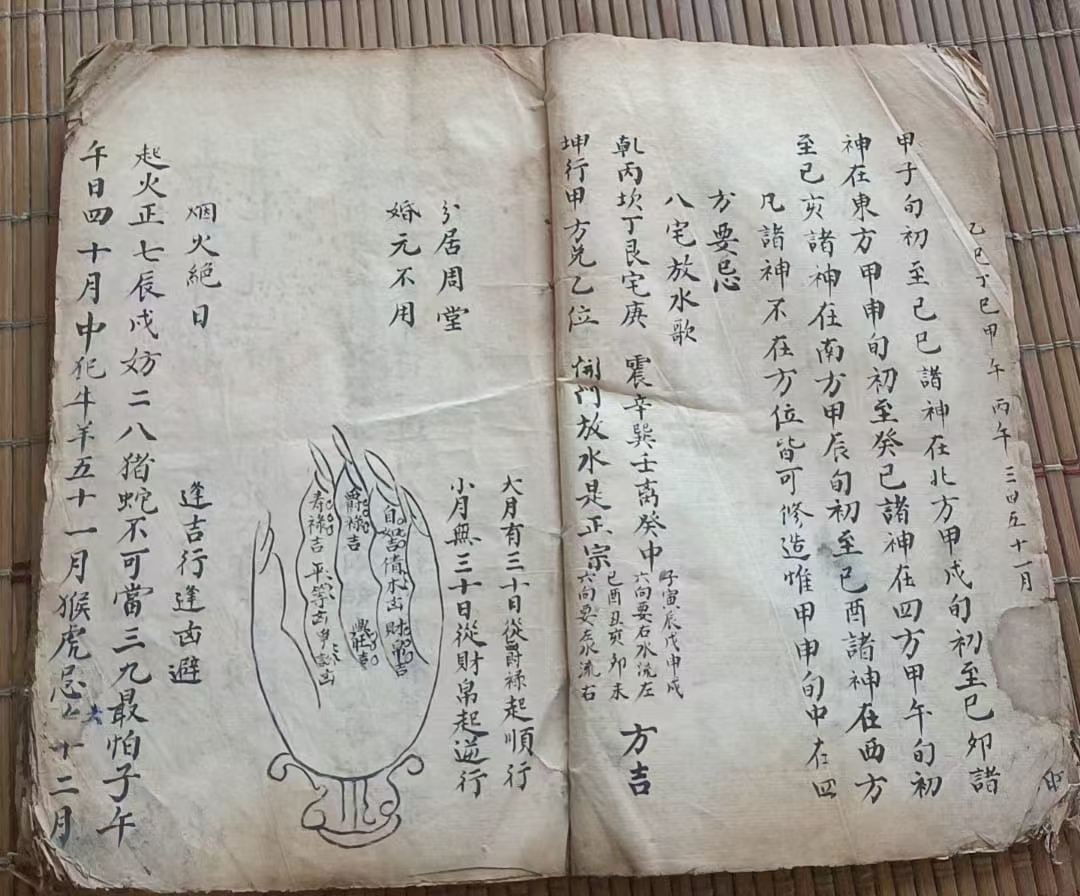 乙巳丁巳甲午 丙午 三四五十一月
甲子旬初至己巳諸神在北方甲戌旬初至己卯諸
神在東方甲申旬初至癸巳諸神在四方甲午旬初
至己亥諸神在南方甲辰旬初至己酉諸神在西方
凡諸神不在方位皆可修造惟甲申旬中在四
方要忌
八宅放水歌
乹丙坎丁艮宅庚 震辛巽壬离癸中
子寅辰戊申戌
六向要右水流左
坤行甲方兑乙位 開門放水是正宗
巳酉丑亥卯未
六向要左水流右
方吉
分居周堂
婚元不用
大月有三十日從爵祿起順行
小月無三十日從財帛起逆行
自如吉 債木凶 財帛吉
爵祿吉
寿禄吉 平等凶
烟火絕日 逢吉行逢凶避
起火正七辰戌妨二八猪蛇不可當三九最怕子午
午日四十月中犯牛羊五十一月猴虎忌六十二月